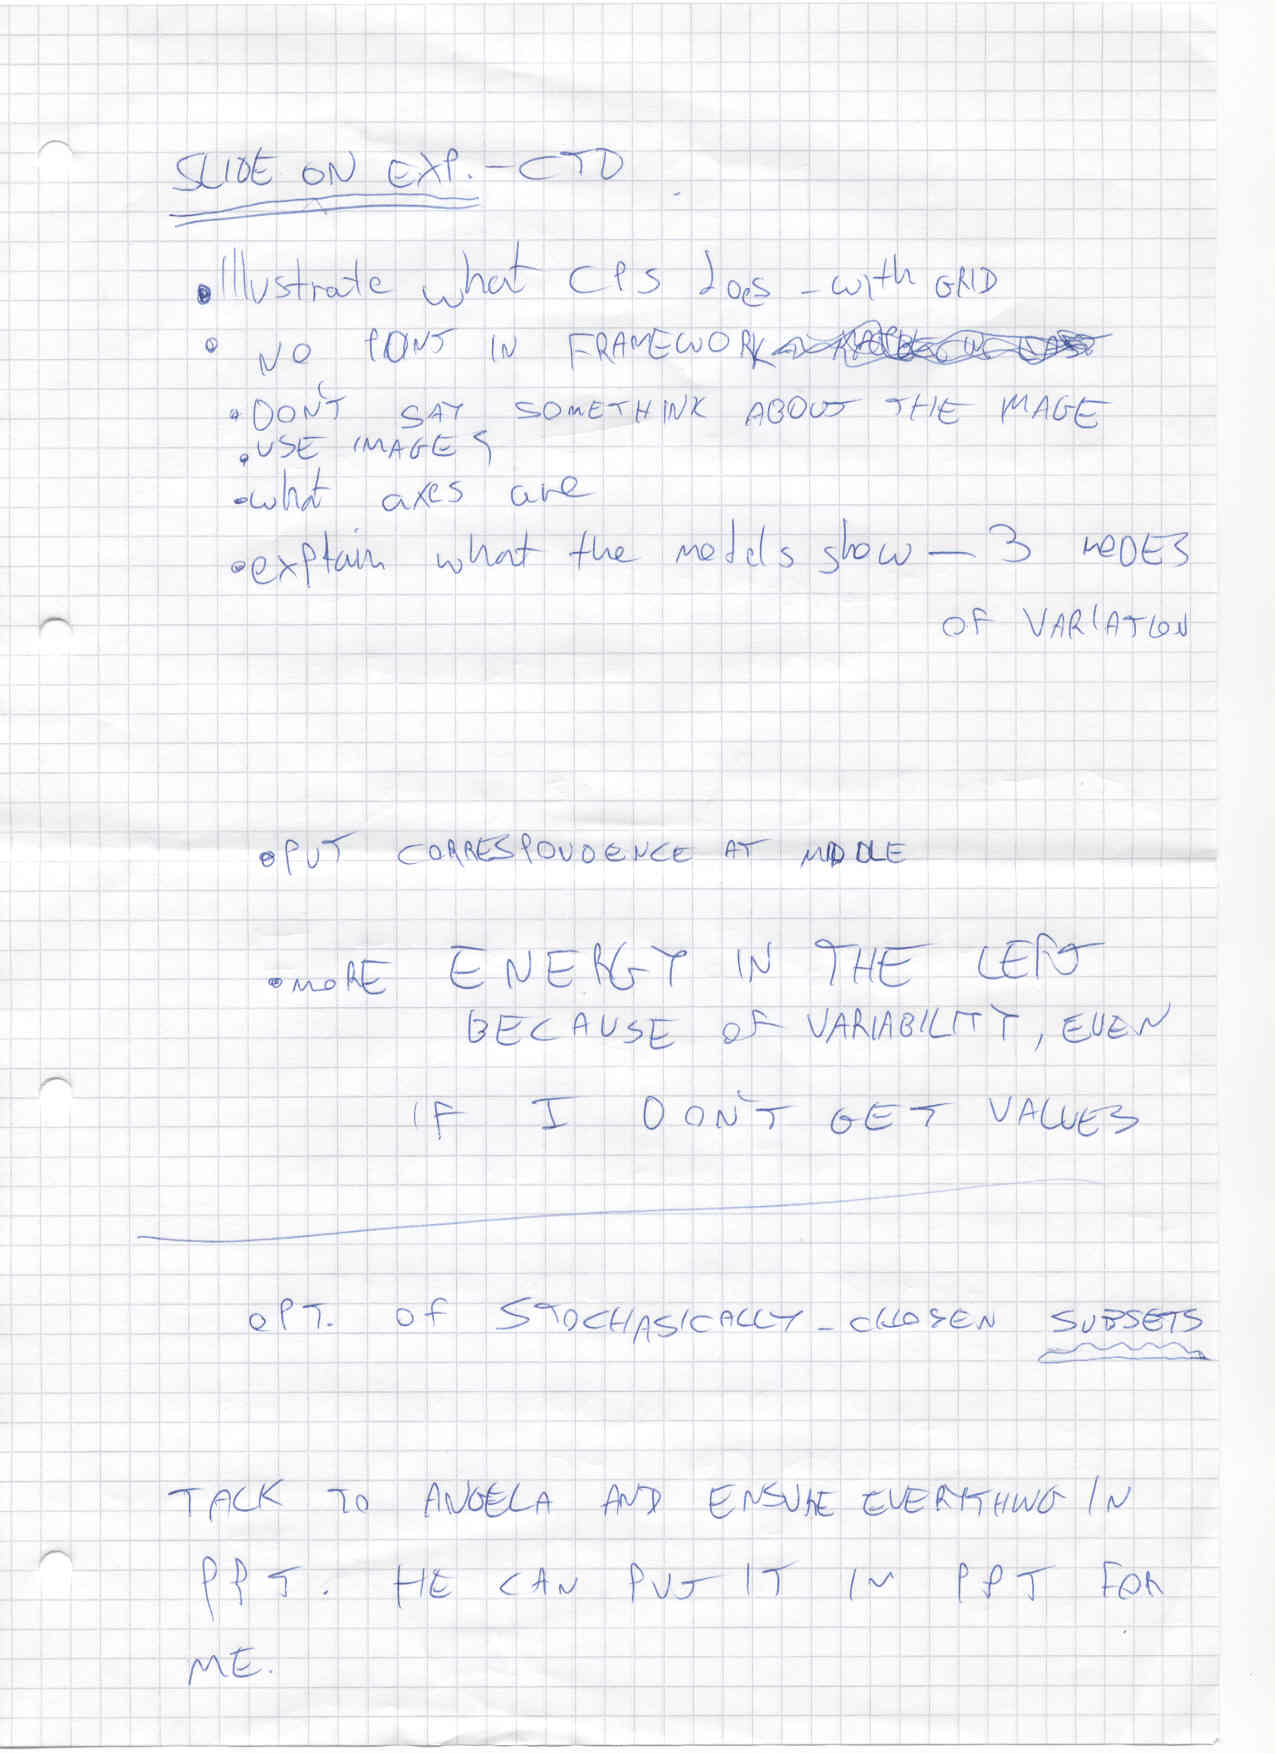 SLIDE ON EXP. - CTD
• Illustrate what CPS does - with GRID
• NO POINT IN FRAMEWORK
• DON'T SAY SOMETHINK ABOUT THE IMAGE
• USE IMAGES
• what axes are
• explain what the models show - 3 MODES
OF VARIATION
• PUT CORRESPONDENCE AT MIDDLE
• MORE ENERGY IN THE LEFT
BECAUSE OF VARIABILITY, EVEN
IF I DON'T GET VALUES
OPT. OF STOCHASICALLY-CHOSEN SUBSETS
TALK TO ANGELA AND ENSURE EVERYTHING IN
PPT. HE CAN PUT IT IN PPT FOR
ME.